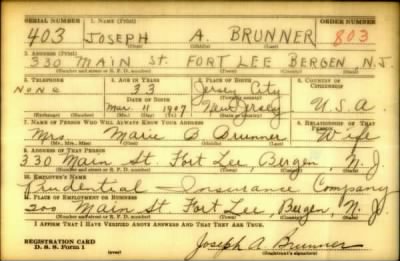 SERIAL NUMBER 1. NAME (Print) ORDER NUMBER
403 JOSEPH A. BRUNNER 803
(First) (Middle) (Last)
2. ADDRESS (Print)
330 MAIN St. FORT LEE BERGEN, N.J.
(Number and street or R. F. D. number) (Town) (County) (State)
3. TELEPHONE 4. AGE IN YEARS 5. PLACE OF BIRTH 6. COUNTRY OF CITIZENSHIP
None 33 Jersey City
DATE OF BIRTH (Town or county)
Mar. 11 1907 New Jersey U.S.A
(Exchange) (Number) (Mo.) (Day) (Yr.) (State or country)
7. NAME OF PERSON WHO WILL ALWAYS KNOW YOUR ADDRESS 8. RELATIONSHIP OF THAT PERSON
Mrs. Marie B Brunner Wife
(Mr., Mrs., Miss) (First) (Middle) (Last)
9. ADDRESS OF THAT PERSON
330 Main St. Fort Lee, Bergen, N. J.
(Number and street or R. F. D. number) (Town) (County) (State)
10. EMPLOYER'S NAME
Prudential Insurance Company
11. PLACE OF EMPLOYMENT OR BUSINESS
200 Main St. Fort Lee, Bergen, N. J.
(Number and street or R. F. D. number) (Town) (County) (State)
I AFFIRM THAT I HAVE VERIFIED ABOVE ANSWERS AND THAT THEY ARE TRUE.
REGISTRATION CARD
D. S. S. Form 1 (over) Joseph A Brunner
(Registrant's signature)